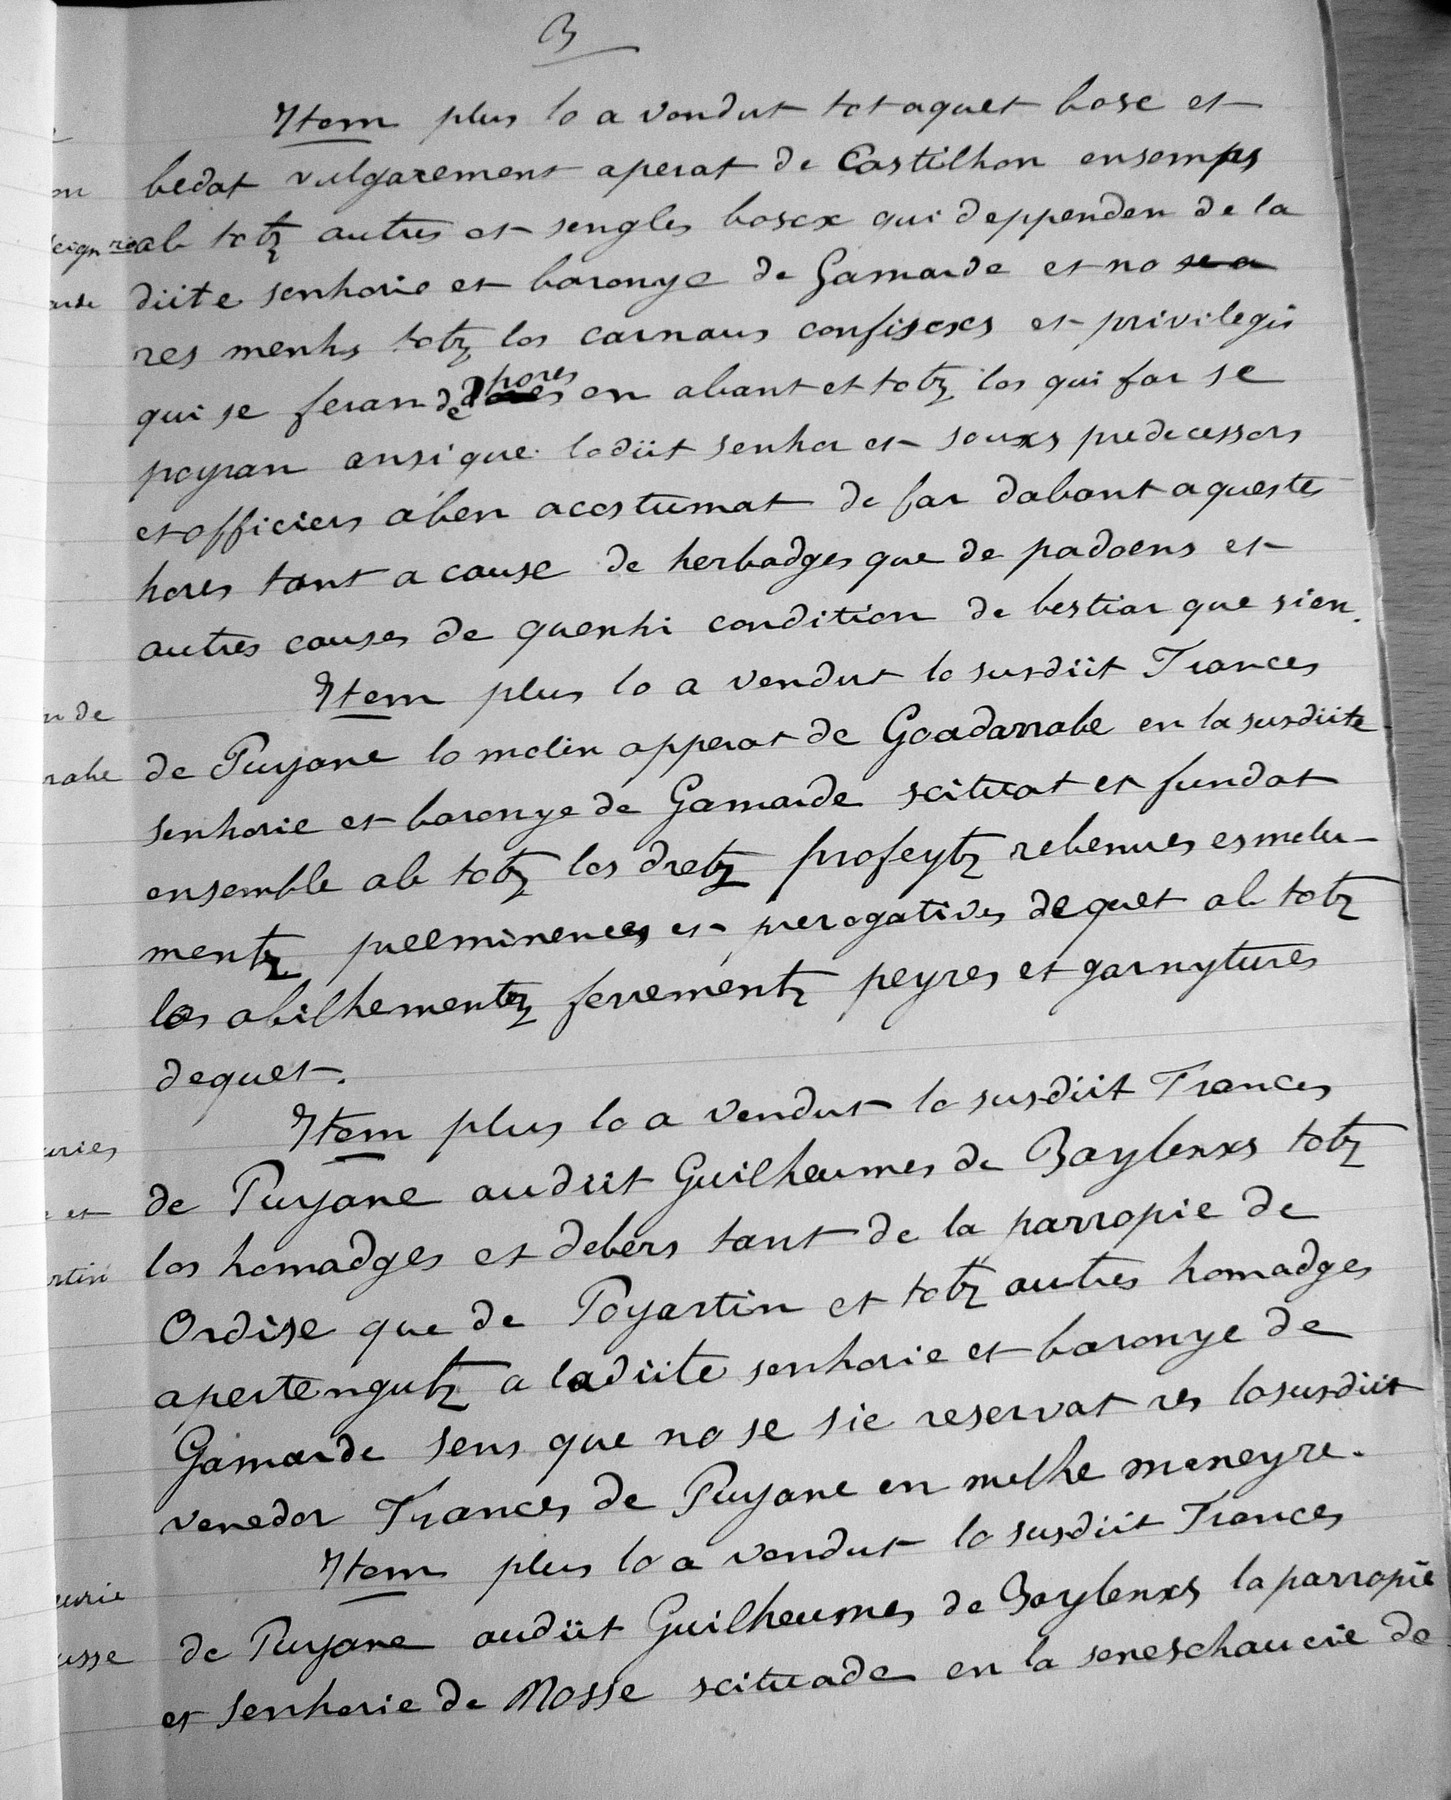 3
Item plus lo a vendut tot aquet bosc et
bedat vulgarement aperat de Castilhon ensemps
ab totz autres et sengles boscx qui deppenden de la
diite senhorie et baronye de Gamarde et no
res menhs totz los carnaus confiscxs et privilegis
qui se feran de hores en abant et totz los qui far se
poyran ansi que lodiit senhor et souxs predecessors
et officiers aben acostumat de far dabant aquestes
hores tant a cause de herbadges que de padoens et
autres causes de quenhi condition de bestiar que sien.
Item plus lo a vendut lo susdiit Frances
de Puyane lo molin apperat de Goadarrabe en la susdiite
senhorie et baronye de Gamarde scituat et fundat
ensemble ab totz los dretz profeytz rebenues esmolu-
mentz preeminences et prerogatives dequet ab totz
los abilhementz ferrementz peyres et garnytures
dequet.
Item plus lo a vendut lo susdiit Frances
de Puyane audiit Guilheumes de Baylenxs totz
los homadges et debers tant de la parropie de
Ordise que de Poyartin et totz autres homadges
apertengutz a ladiite senhorie et baronye de
Gamarde sens que no se sie reservat res losusdiit
venedor Frances de Puyane en melhe maneyre.
Item plus lo a vendut lo susdiit Frances
de Puyane audiit Guilheumes de Baylenxs la parropie
et senhorie de Mosse scituade en la seneschaucie de